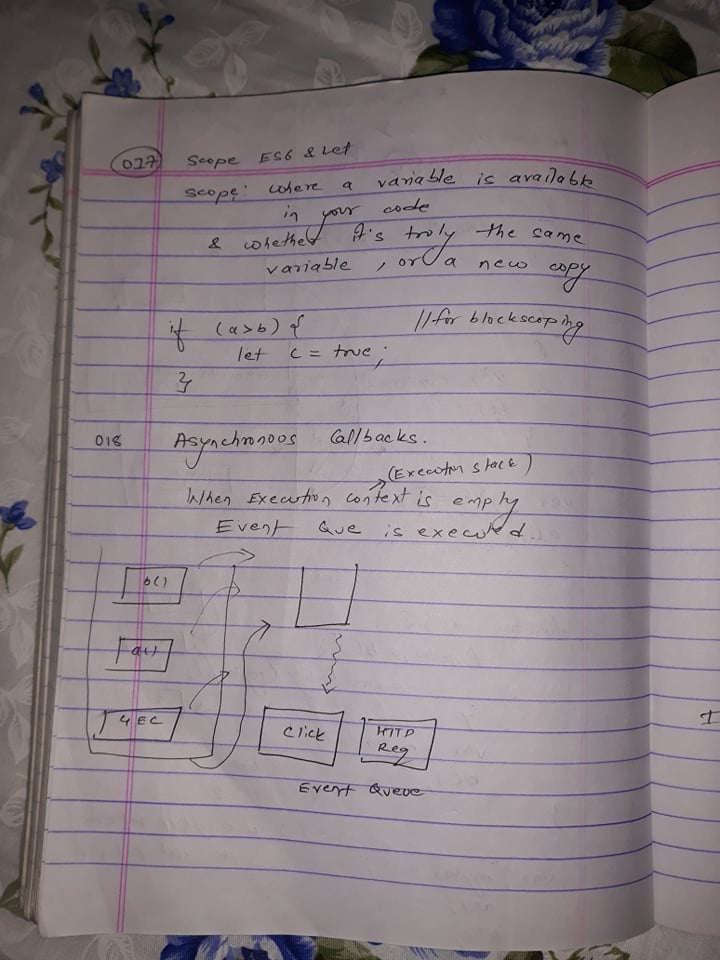 017 Scope ES6 & Let
scope: where a variable is available
in your code
& whether it's truly the same
variable, or a new copy
if (a>b) { //for blockscoping
let c = true;
}
018 Asynchronous Callbacks.
(Execution stack)
When Execution context is empty
Event Que is executed.
b()
a()
GEC
Click
HTTP
Req
Event Queue
I